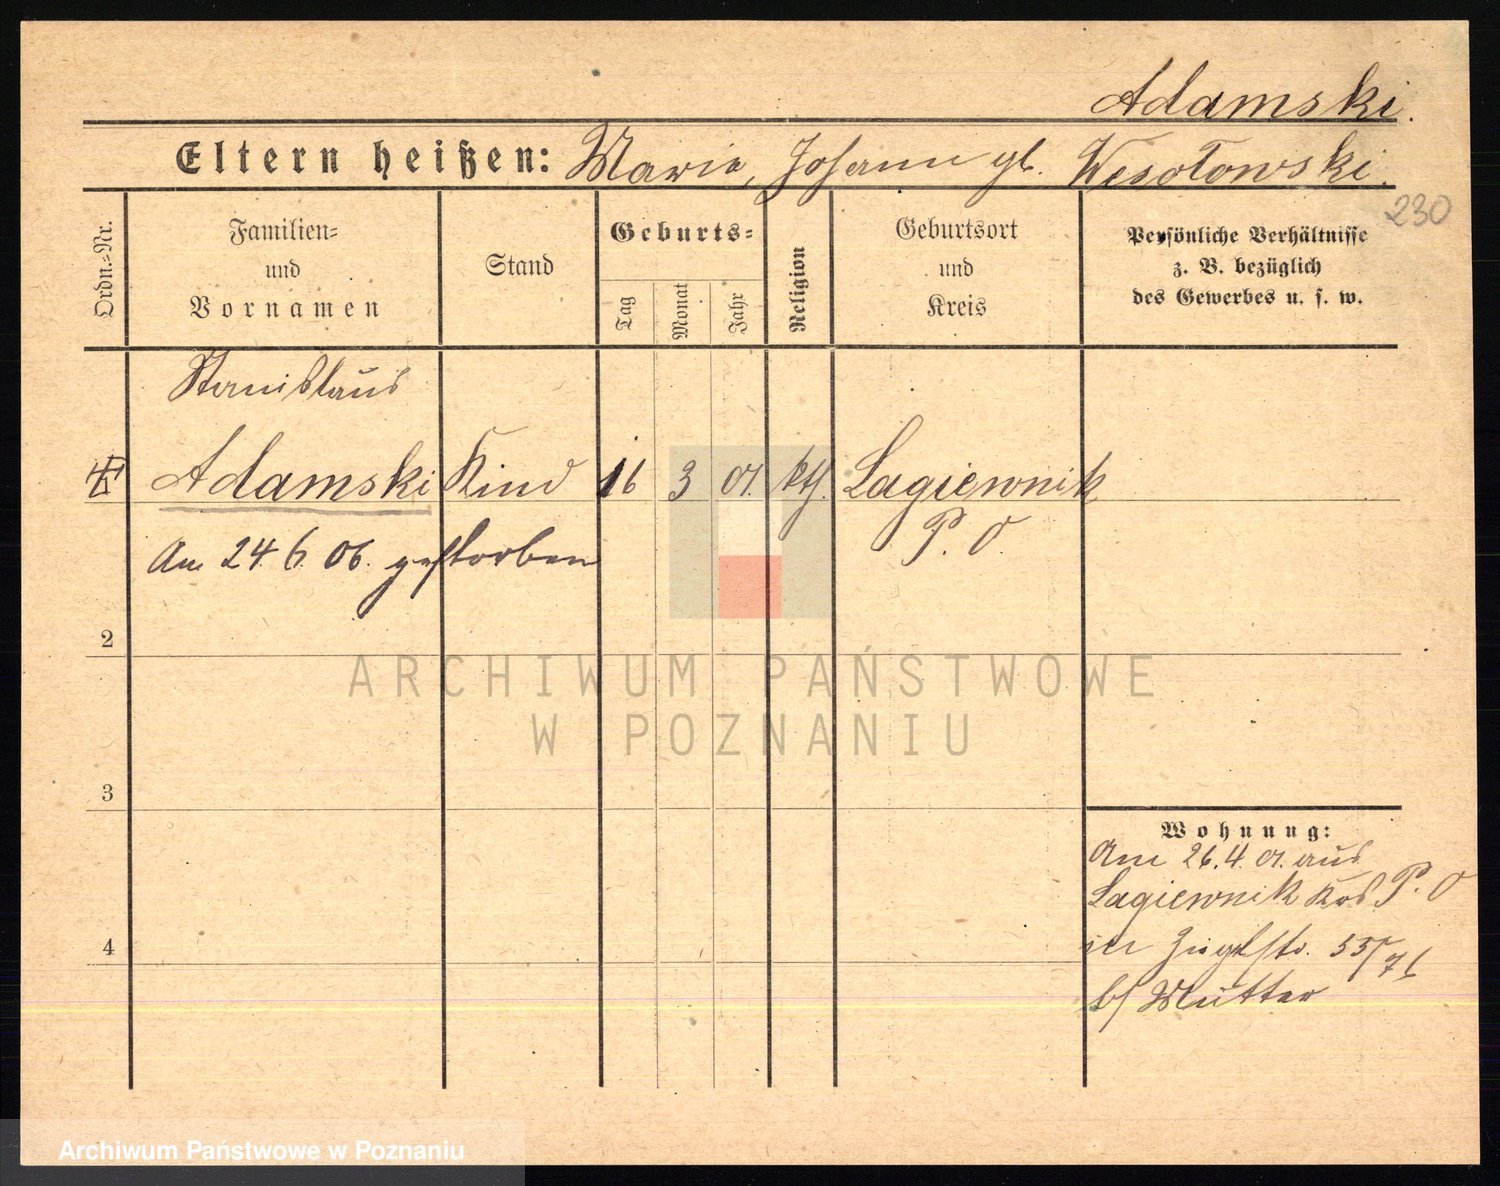 Adamski.
Eltern heißen: Maria, Johann gb. Wesołowski.
230
Ordn.-Nr.
Familien-
und
Vornamen
Stand
Geburts-
Tag
Monat
Jahr
Religion
Geburtsort
und
Kreis
Persönliche Verhältnisse
z. B. bezüglich
des Gewerbes u. s. w.
Stanislaus
Adamski Kind 16 3 01. kth. Lagiewnik
P. O.
Am 24. 6. 06. gestorben
2
3
4
ARCHIWUM PAŃSTWOWE
W POZNANIU
Wohnung:
Am 26. 4. 01. aus
Lagiewnik P. O
53/76
b/ Mutter
Archiwum Państwowe w Poznaniu